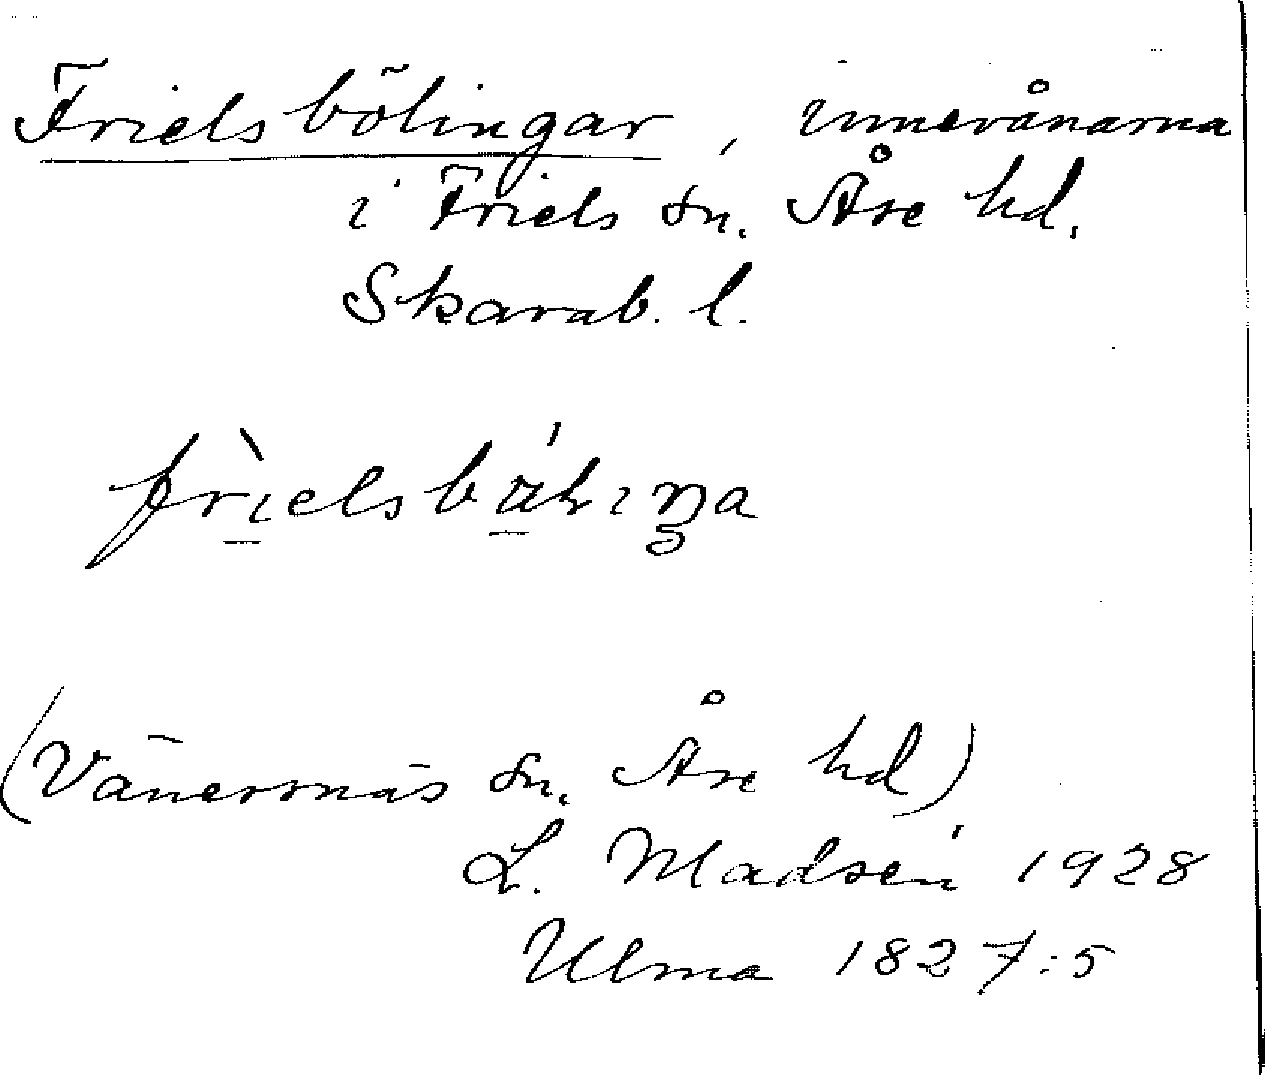 Frielsbölingar, innevånarna
i Friels sn. Åse hd.
Skarab. l.
(Vänersnäs sn. Åse hd)
L. Madsén 1928
Ulma 1827:5